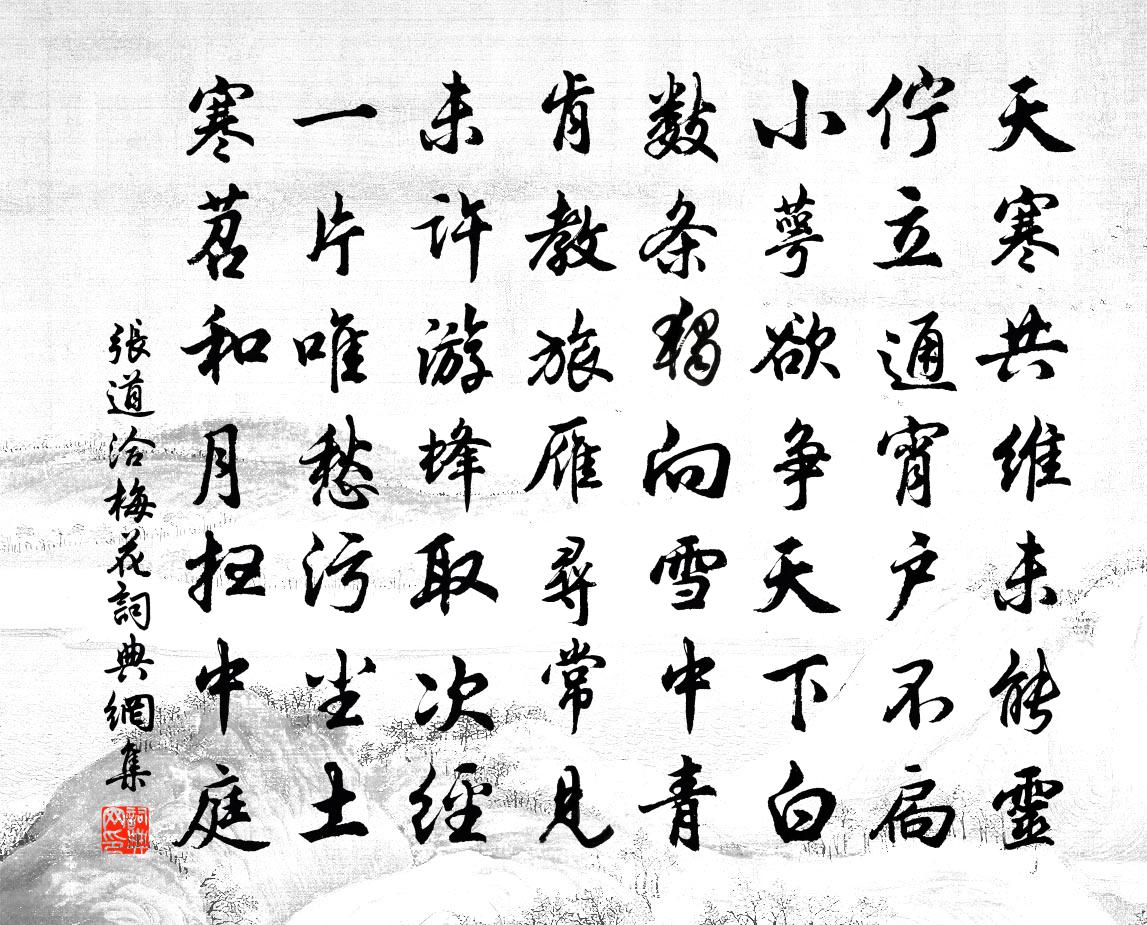 天寒共維未能靈
佇立通宵户不扃
小萼欲争天下白
數条獨向雪中青
肯教旅雁尋常見
未許游蜂取次經
一片唯愁污尘土
寒苕和月扫中庭
張道洽梅花詞典網集